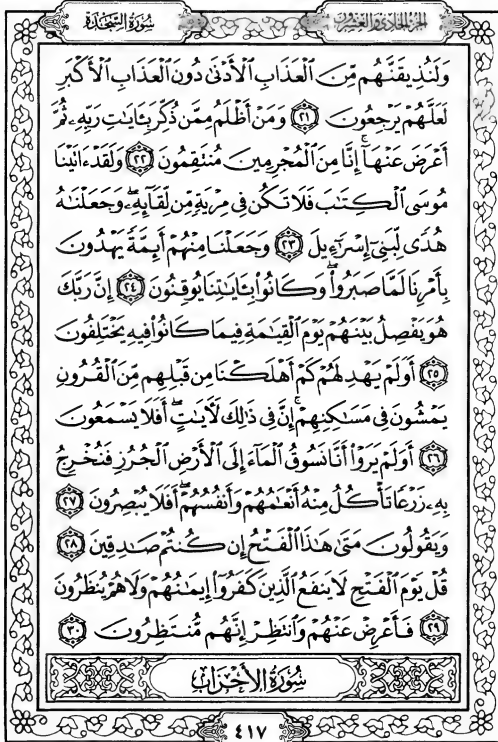 سُورَةُ السَّجْدَةِ
الجُزءُ الحَادِي وَالعِشرُون
وَلَنُذِيقَنَّهُم مِّنَ ٱلْعَذَابِ ٱلْأَدْنَىٰ دُونَ ٱلْعَذَابِ ٱلْأَكْبَرِ
لَعَلَّهُمْ يَرْجِعُونَ ﴿٢١﴾ وَمَنْ أَظْلَمُ مِمَّن ذُكِّرَ بِـَٔايَٰتِ رَبِّهِۦ ثُمَّ
أَعْرَضَ عَنْهَآ ۚ إِنَّا مِنَ ٱلْمُجْرِمِينَ مُنتَقِمُونَ ﴿٢٢﴾ وَلَقَدْ ءَاتَيْنَا
مُوسَى ٱلْكِتَٰبَ فَلَا تَكُن فِى مِرْيَةٍ مِّن لِّقَآئِهِۦ ۖ وَجَعَلْنَٰهُ
هُدًى لِّبَنِىٓ إِسْرَٰٓءِيلَ ﴿٢٣﴾ وَجَعَلْنَا مِنْهُمْ أَئِمَّةً يَهْدُونَ
بِأَمْرِنَا لَمَّا صَبَرُوا۟ ۖ وَكَانُوا۟ بِـَٔايَٰتِنَا يُوقِنُونَ ﴿٢٤﴾ إِنَّ رَبَّكَ
هُوَ يَفْصِلُ بَيْنَهُمْ يَوْمَ ٱلْقِيَٰمَةِ فِيمَا كَانُوا۟ فِيهِ يَخْتَلِفُونَ
﴿٢٥﴾ أَوَلَمْ يَهْدِ لَهُمْ كَمْ أَهْلَكْنَا مِن قَبْلِهِم مِّنَ ٱلْقُرُونِ
يَمْشُونَ فِى مَسَٰكِنِهِمْ ۚ إِنَّ فِى ذَٰلِكَ لَـَٔايَٰتٍ ۖ أَفَلَا يَسْمَعُونَ
﴿٢٦﴾ أَوَلَمْ يَرَوْا۟ أَنَّا نَسُوقُ ٱلْمَآءَ إِلَى ٱلْأَرْضِ ٱلْجُرُزِ فَنُخْرِجُ
بِهِۦ زَرْعًا تَأْكُلُ مِنْهُ أَنْعَٰمُهُمْ وَأَنفُسُهُمْ ۖ أَفَلَا يُبْصِرُونَ ﴿٢٧﴾
وَيَقُولُونَ مَتَىٰ هَٰذَا ٱلْفَتْحُ إِن كُنتُمْ صَٰدِقِينَ ﴿٢٨﴾
قُلْ يَوْمَ ٱلْفَتْحِ لَا يَنفَعُ ٱلَّذِينَ كَفَرُوٓا۟ إِيمَٰنُهُمْ وَلَا هُمْ يُنظَرُونَ
﴿٢٩﴾ فَأَعْرِضْ عَنْهُمْ وَٱنتَظِرْ إِنَّهُم مُّنتَظِرُونَ ﴿٣٠﴾
سُورَةُ الأَحْزَابِ
٤١٧